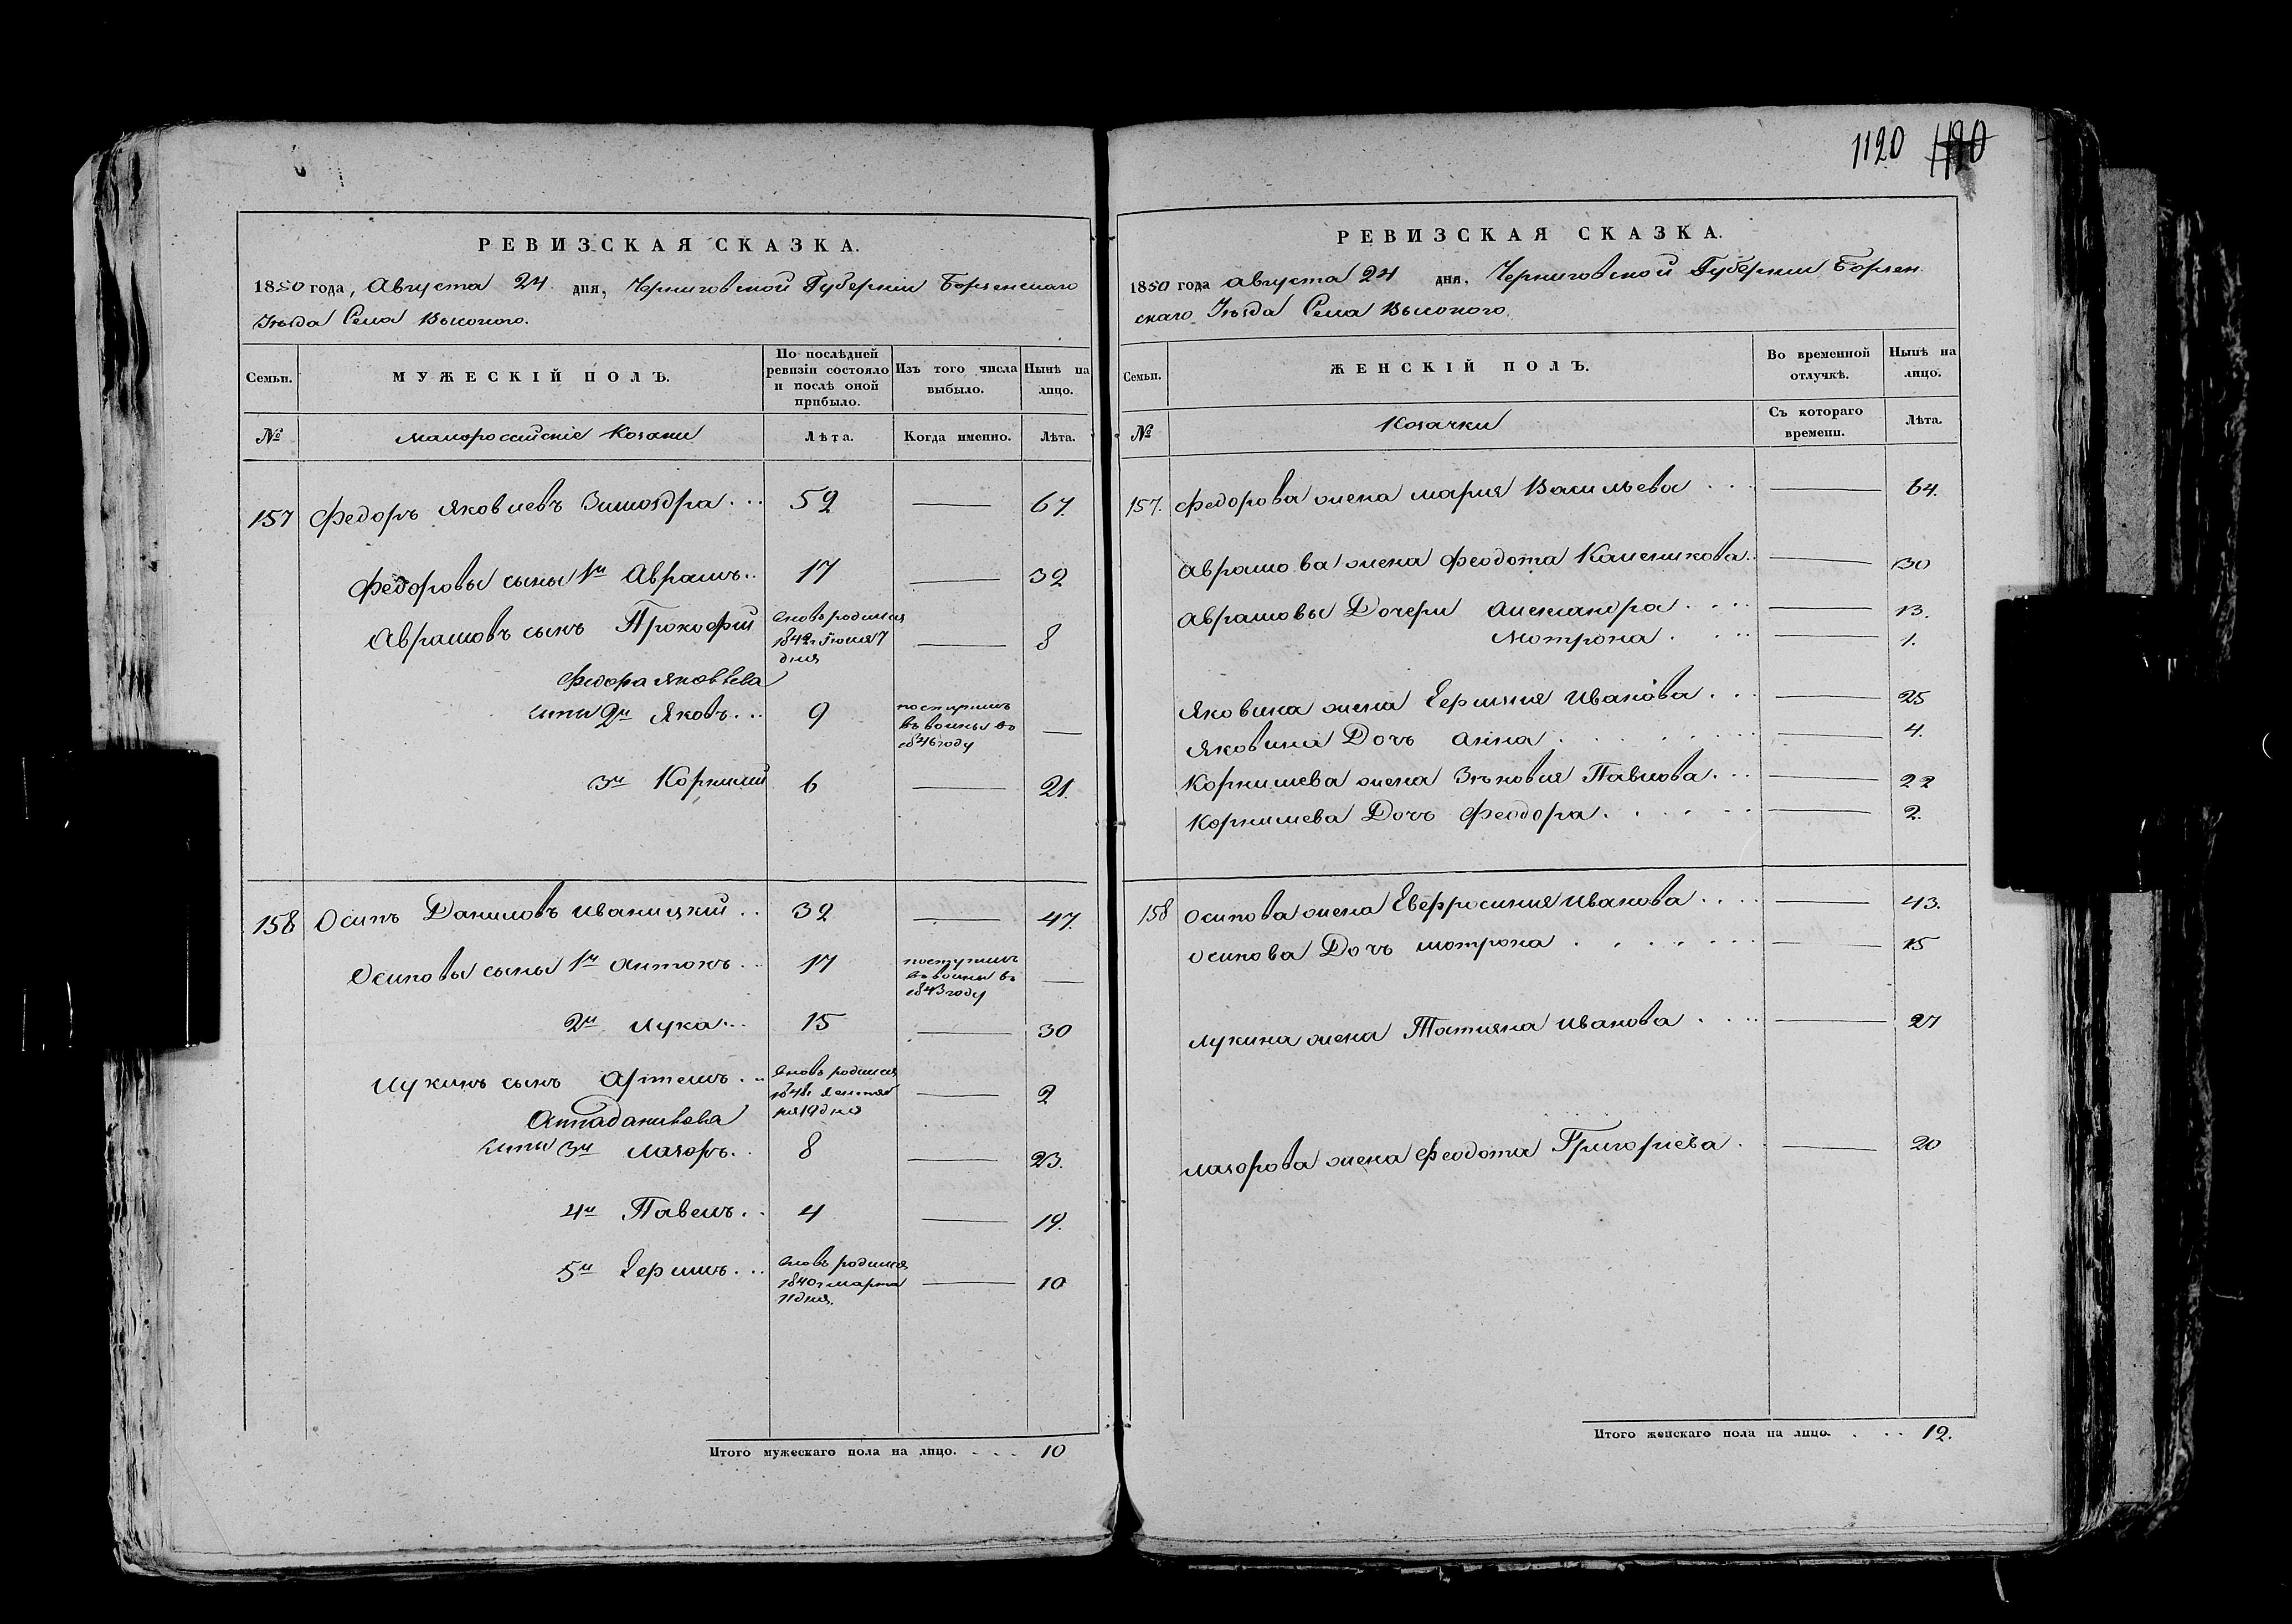 1120 1120
РЕВИЗСКАЯ СКАЗКА.
1850 года, Августа 24 дня, Черниговской Губерніи Борзенскаго
Уѣзда Села Высокого.
Семьи. МУЖЕСКІЙ ПОЛЪ. По послѣдней ревизіи состояло и послѣ оной прибыло. Изъ того числа выбыло. Нынѣ на лицо.
№ Малороссійскіе Козаки Лѣта. Когда именно. Лѣта.
157 Федоръ Яковлевъ Зимоздра ... 52 — 67.
Федоровы сыны 1й Аврамъ .. 17 — 32
Аврамовъ сынъ Прокофій вновь родился 1842 г Іюня 7 дня — 8
Федора Яковлева
сыны 2й Яковъ ... 9 поступилъ въ воины въ 1846 году —
3й Корнилій 6 — 21.
158 Осипъ Даниловъ Иваницкій .. 32 — 47.
Осиповы сыны 1й Антонъ ... 17 поступилъ въ воины въ 1843 году —
2й Лука ... 15 — 30
Лукинъ сынъ Артемъ ... вновь родился 1848 Сентября 19 дня — 2
Осипа Данилова
сыны 3й Лазорь .. 8 — 23.
4й Павелъ .. 4 — 19.
5й Еримъ ... вновь родился 1840 г марта 11 дня. — 10
Итого мужескаго пола на лицо. .... 10
РЕВИЗСКАЯ СКАЗКА.
1850 года Августа 24 дня, Черниговской Губерніи Борзен
скаго Уѣзда Села Высокого.
Семьи. ЖЕНСКІЙ ПОЛЪ. Во временной отлучкѣ. Нынѣ на лицо.
№ Козачки Съ котораго времени. Лѣта.
157. Федорова жена Марія Васильева ... — 64.
Аврамова жена Феодота Каленикова .. — 30
Аврамовы Дочери Александра .... — 13.
Мотрона .... — 1.
Яковина жена Ериния Иванова ... — 25
Яковина Дочь Анна ....... — 4.
Корнилиева жена Зѣновія Павлова ... — 22
Корнилиева Дочь Феодора ..... — 2.
158 Осипова жена Евфросинія Иванова .... — 43.
Осипова Дочь Мотрона ...... — 15
Лукина жена Татияна Иванова .... — 27
Лазорова жена Феодота Григоріева .. — 20
Итого женскаго пола на лицо. .... 12.